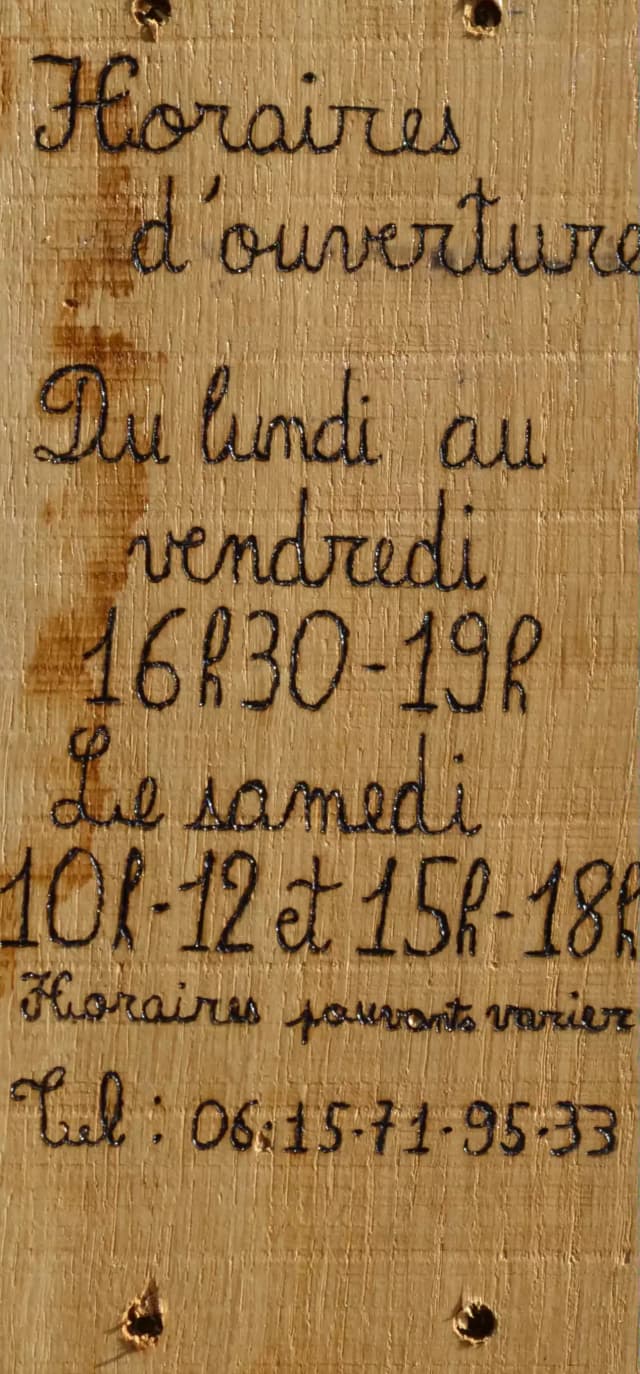 Horaires
d'ouverture
Du lundi au
vendredi
16h30-19h
Le samedi
10h-12 et 15h-18h
Horaires pouvants varier
Tel : 06.15.71.95.33